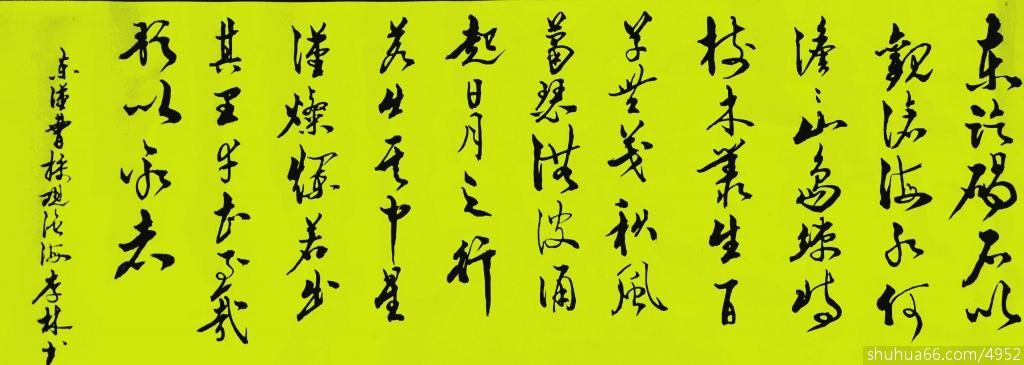 東臨碣石以
觀滄海水何
澹〻山島竦峙
樹木叢生百
草豐茂秋風
蕭瑟洪波涌
起日月之行
若出其中星
漢燦爛若出
其里幸甚至哉
歌以詠志
东漢曹操观沧海李林书
shuhua66.com/4952